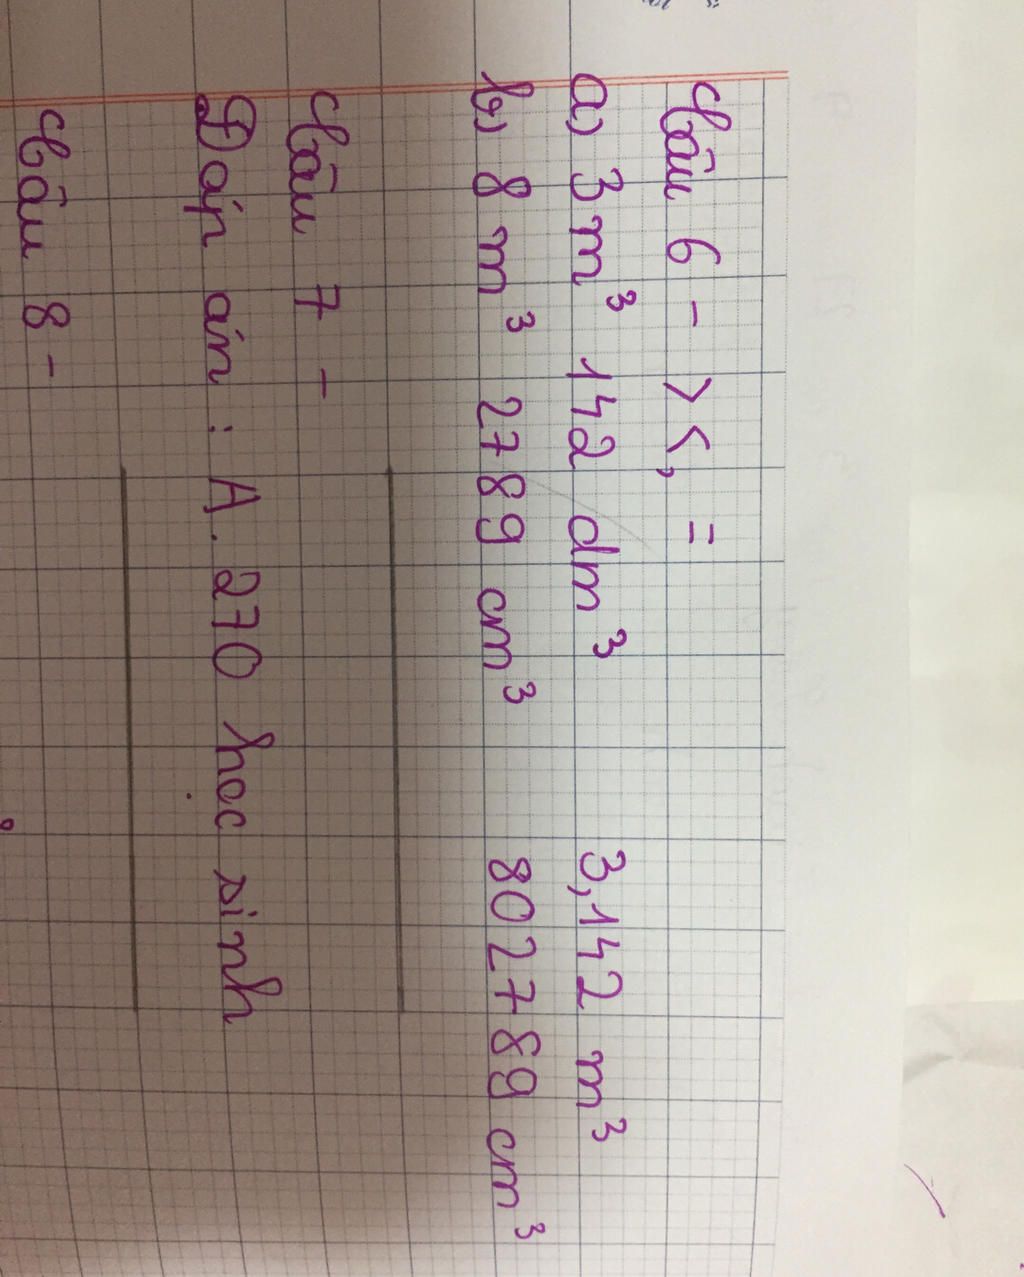 Câu 6 - > <, =
a) 3 m³ 142 dm³ 3,142 m³
b) 8 m³ 2789 cm³ 802789 cm³
Câu 7 -
Đáp án : A. 270 học sinh
Câu 8 -